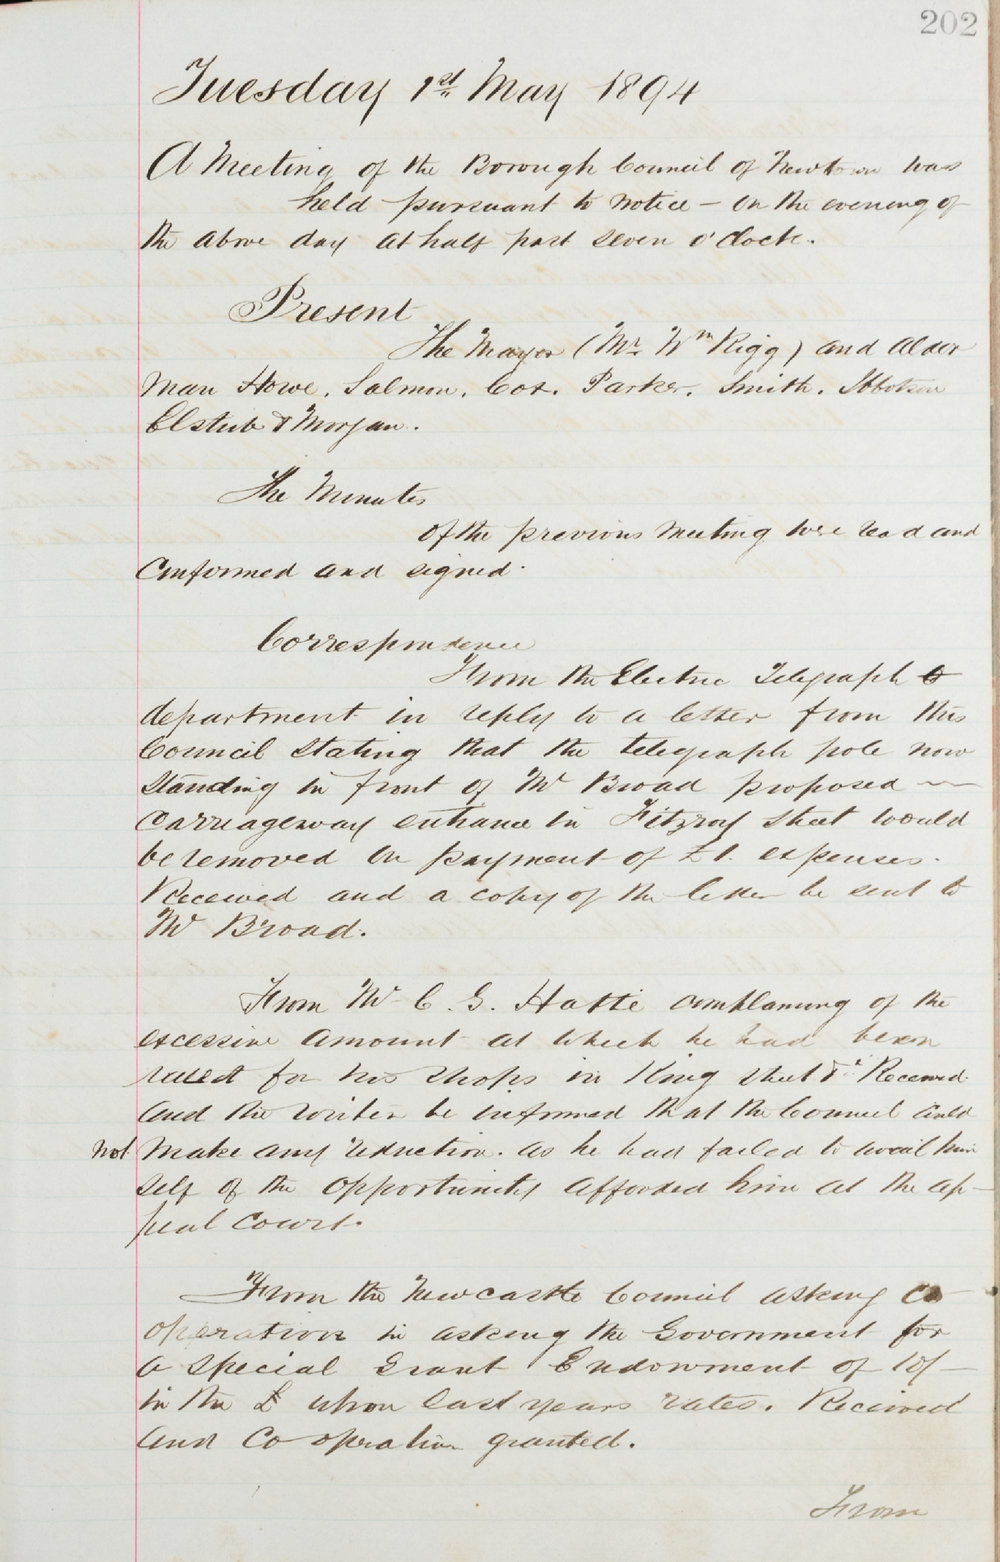 202
Tuesday 1st May 1894
A Meeting of the Borough Council of Newtown was
held pursuant to notice – on the evening of
the above day at half past seven o'clock.
Present
The Mayor (Mr. Wm Rigg) and Alder
man Howe, Salmon, Cox, Parker, Smith, Ibbotson
Elstub & Morgan.
The Minutes
of the previous meeting were read and
confirmed and signed.
Correspondence
From the Electric Telegraph
department in reply to a letter from this
Council stating that the telegraph pole now
standing in front of Mr Broad proposed —
carriageway entrance in Fitzroy Street would
be removed on payment of £1. expenses.
Received and a copy of the letter be sent to
Mr Broad.
From Mr C. G. Hatte complaining of the
excessive amount at which he had been
rated for his shops in King Street &c Received
and the writer be informed that the Council could
not make any reduction. as he had failed to avail him
self of the opportunity afforded him at the ap-
peal court.
From the Newcastle Council asking co
operation in asking the Government for
a special Grant Endowment of 10/-
in the £ upon last years rates. Received
and Co operation granted.
From